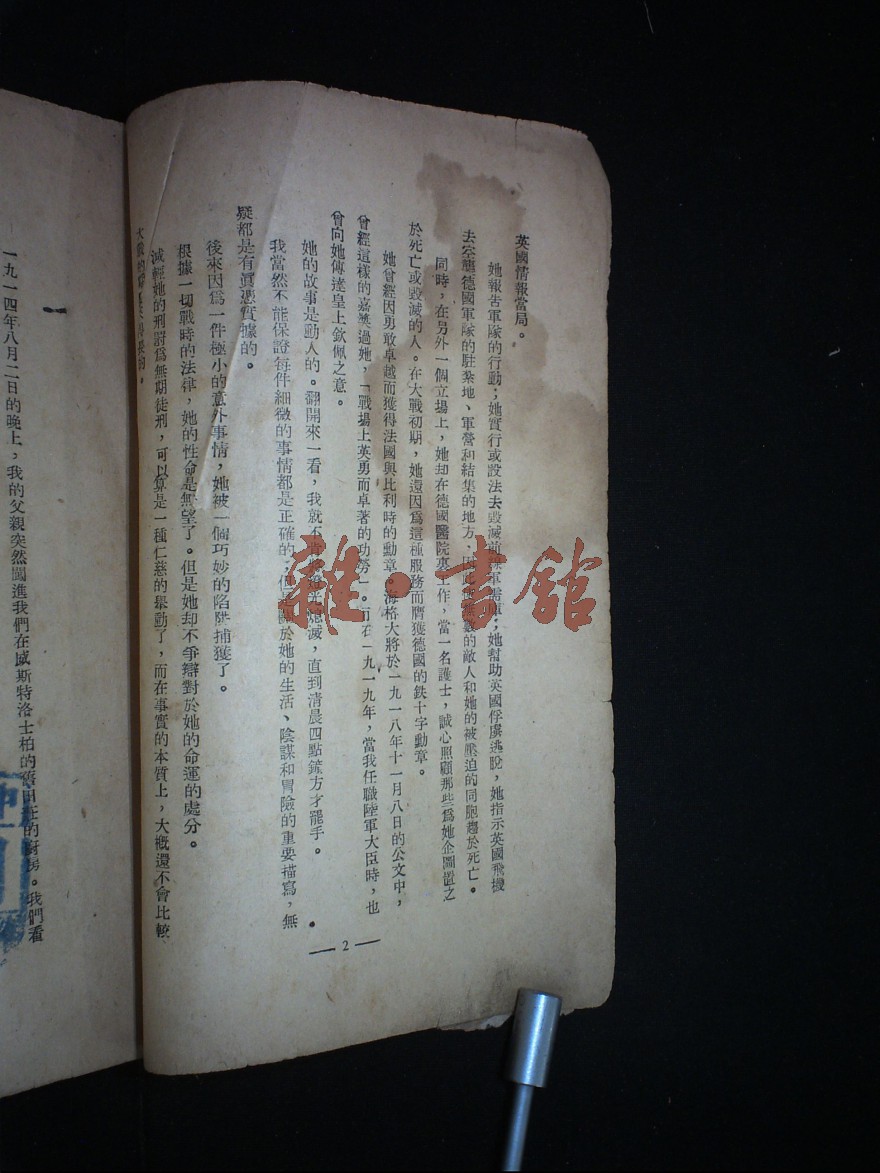 英國情報當局。
她報告軍隊的行動；她實行或設法去毀滅前線軍需庫；她幫助英國俘虜逃脫，她指示英國飛機
去空襲德國軍隊的駐紮地、軍營和結集的地方，因此使無數的敵人和她的被壓迫的同胞趨於死亡。
同時，在另外一個立場上，她却在德國醫院裏工作，當一名護士，誠心照顧那些爲她企圖置之
於死亡或毀滅的人。在大戰初期，她還因爲這種服務而膺獲德國的鉄十字勳章。
她曾經因勇敢卓越而獲得法國與比利時的勳章。海格大將於一九一八年十一月八日的公文中，
曾經這樣的嘉奬過她，「戰場上英勇而卓著的功勞」。而在一九一九年，當我任職陸軍大臣時，也
曾向她傳達皇上欽佩之意。
她的故事是動人的。翻開來一看，我就不肯將燈光熄滅，直到清晨四點鐘方才罷手。
我當然不能保證每件細微的事情都是正確的，但是關於她的生活、陰謀和冒險的重要描寫，無
疑都是有眞憑實據的。
後來因爲一件極小的意外事情，她被一個巧妙的陷阱捕獲了。
根據一切戰時的法律，她的性命是無望了。但是她却不爭辯對於她的命運的處分。
減輕她的刑罸爲無期徒刑，可以算是一種仁慈的舉動了，而在事實的本質上，大概還不會比較
長的。
2
一
一九一四年八月二日的晚上，我的父親突然闖進我們在威斯特洛士柏的舊田莊的廚房。我們看
雜·書館